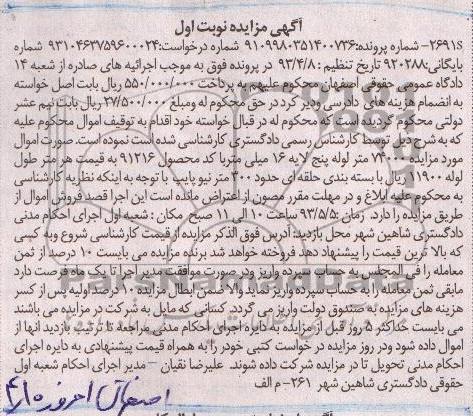 آگهی مزایده نوبت اول
۲۶۹۱S- شماره پرونده:۹۱۰۹۹۸۰۳۵۱۴۰۰۷۳۶ شماره درخواست:۹۳۱۰۴۶۳۷۵۹۶۰۰۰۲۴ شماره
بایگانی:۹۲۰۲۸۸ تاریخ تنظیم : ۹۳/۴/۸ در پرونده فوق به موجب اجرائیه های صادره از شعبه ۱۴
دادگاه عمومی حقوقی اصفهان محکوم علیهم به پرداخت ۵۵۰/۰۰۰/۰۰۰ ریال بابت اصل خواسته
به انضمام هزینه های دادرسی ودیر کرد در حق محکوم له ومبلغ ۲۷/۵۰۰/۰۰۰ ریال بابت نیم عشر
دولتی محکوم گردیده است که محکوم له در قبال خواسته خود اقدام به توقیف اموال محکوم علیه
که به شرح ذیل توسط کارشناس رسمی دادگستری کارشناسی شده است نموده است. صورت اموال
مورد مزایده ۷۴۰۰۰ متر لوله پنج لایه ۱۶ میلی متر با کد محصول ۹۱۲۱۶ به قیمت هر متر طول
لوله ۱۹۰۰۰ ریال با بسته بندی حلقه ای حدود ۲۰۰ متر نیو پایپ با توجه به اینکه نظریه کارشناسی
به محکوم علیه ابلاغ و در مهلت مقرر مصون از اعتراض مانده است این اجرا قصد فروش اموال از
طریق مزایده را دارد. زمان :۹۳/۵/۵ ساعت ۱۰ الی ۱۱ صبح مکان : شعبه اول اجرای احکام مدنی
دادگستری شاهین شهر محل بازدید: آدرس فوق الذکر مزایده از قیمت کارشناسی شروع وبه کسی
که بالا ترین قیمت را پیشنهاد دهد فروخته خواهد شد برنده مزایده می بایست ۱۰ درصد از ثمن
معامله را فی المجلس به حساب سپرده واریز ودر صورت موافقت مدیر اجرا تا یک ماه فرصت دارد
مابقی ثمن معامله را به حساب سپرده واریز نماید والا ضمن ابطال مزایده ۱۰ درصد اولیه پس از کسر
هزینه های مزایده به صندوق دولت واریز می گردد. کسانی که مایل به شرکت در مزایده می باشند
می بایست حداکثر ۵ روز قبل از مزایده به دایره اجرای احکام مدنی مراجعه تا ترتیب بازدید آنها از
اموال داده شود ودر روز مزایده در خواست کتبی خود را به همراه قیمت پیشنهادی به دایره اجرای
احکام مدنی تحویل تا در مزایده شرکت داده شوند. علیرضا نقیان – مدیر اجرای احکام شعبه اول
حقوقی دادگستری شاهین شهر ۲۶۱- م الف
اصفهان امروز ۴/۲۵